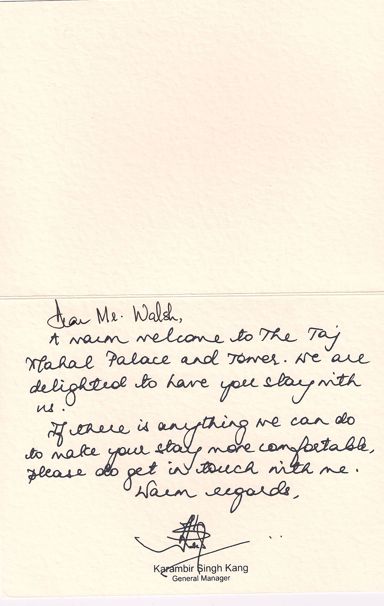 Dear Mr. Walsh,
A warm welcome to The Taj
Mahal Palace and Tower. We are
delighted to have you stay with
us.
If there is anything we can do
to make your stay more comfortable,
please do get in touch with me.
Warm regards,
Karambir Singh Kang
General Manager